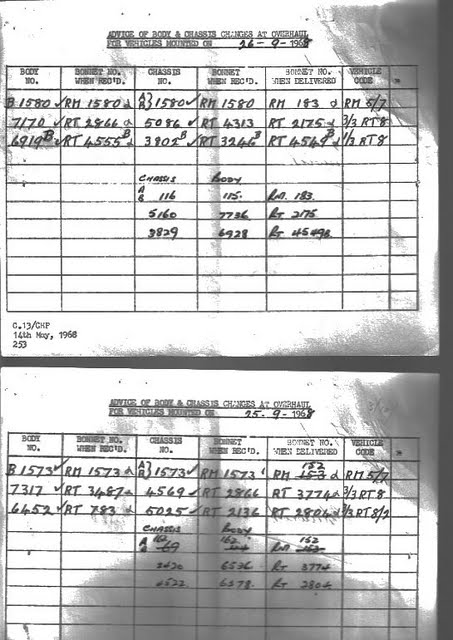 ADVICE OF BODY & CHASSIS CHANGES AT OVERHAUL
FOR VEHICLES MOUNTED ON 26-9-1968
BODY NO. BONNET NO. WHEN REC'D. CHASSIS NO. BONNET WHEN REC'D. BONNET NO. WHEN DELIVERED VEHICLE CODE
B 1580 ✓ RM 1580 A} B} 1580 ✓ RM 1580 RM 183 RM 5/7
7170 ✓ RT 2866 5086 ✓ RT 4313 RT 2175 3/3 RT8
6919 ✓ RT 4555 3802 ✓ RT 3246 RT 4549 1/3 RT8
CHASSIS BODY
A B 116 115. RM. 183
5160 7736 RT 2175
3829 6928 RT 4549B
C.13/CHP
14th May, 1968
253
ADVICE OF BODY & CHASSIS CHANGES AT OVERHAUL
FOR VEHICLES MOUNTED ON 25-9-1968
BODY NO. BONNET NO. WHEN REC'D. CHASSIS NO. BONNET WHEN REC'D. BONNET NO. WHEN DELIVERED VEHICLE CODE
B 1573 ✓ RM 1573 A} B} 1573 ✓ RM 1573 RM 153 152 RM 5/7
7317 ✓ RT 3487 4569 ✓ RT 2866 RT 3774 3/3 RT8
6452 ✓ RT 783 5025 ✓ RT 2136 RT 2804 3/3 RT8/2
CHASSIS BODY
162 162 152
A B 69 RM 153
3420 6536 RT 3774
4522 6578. RT 2804